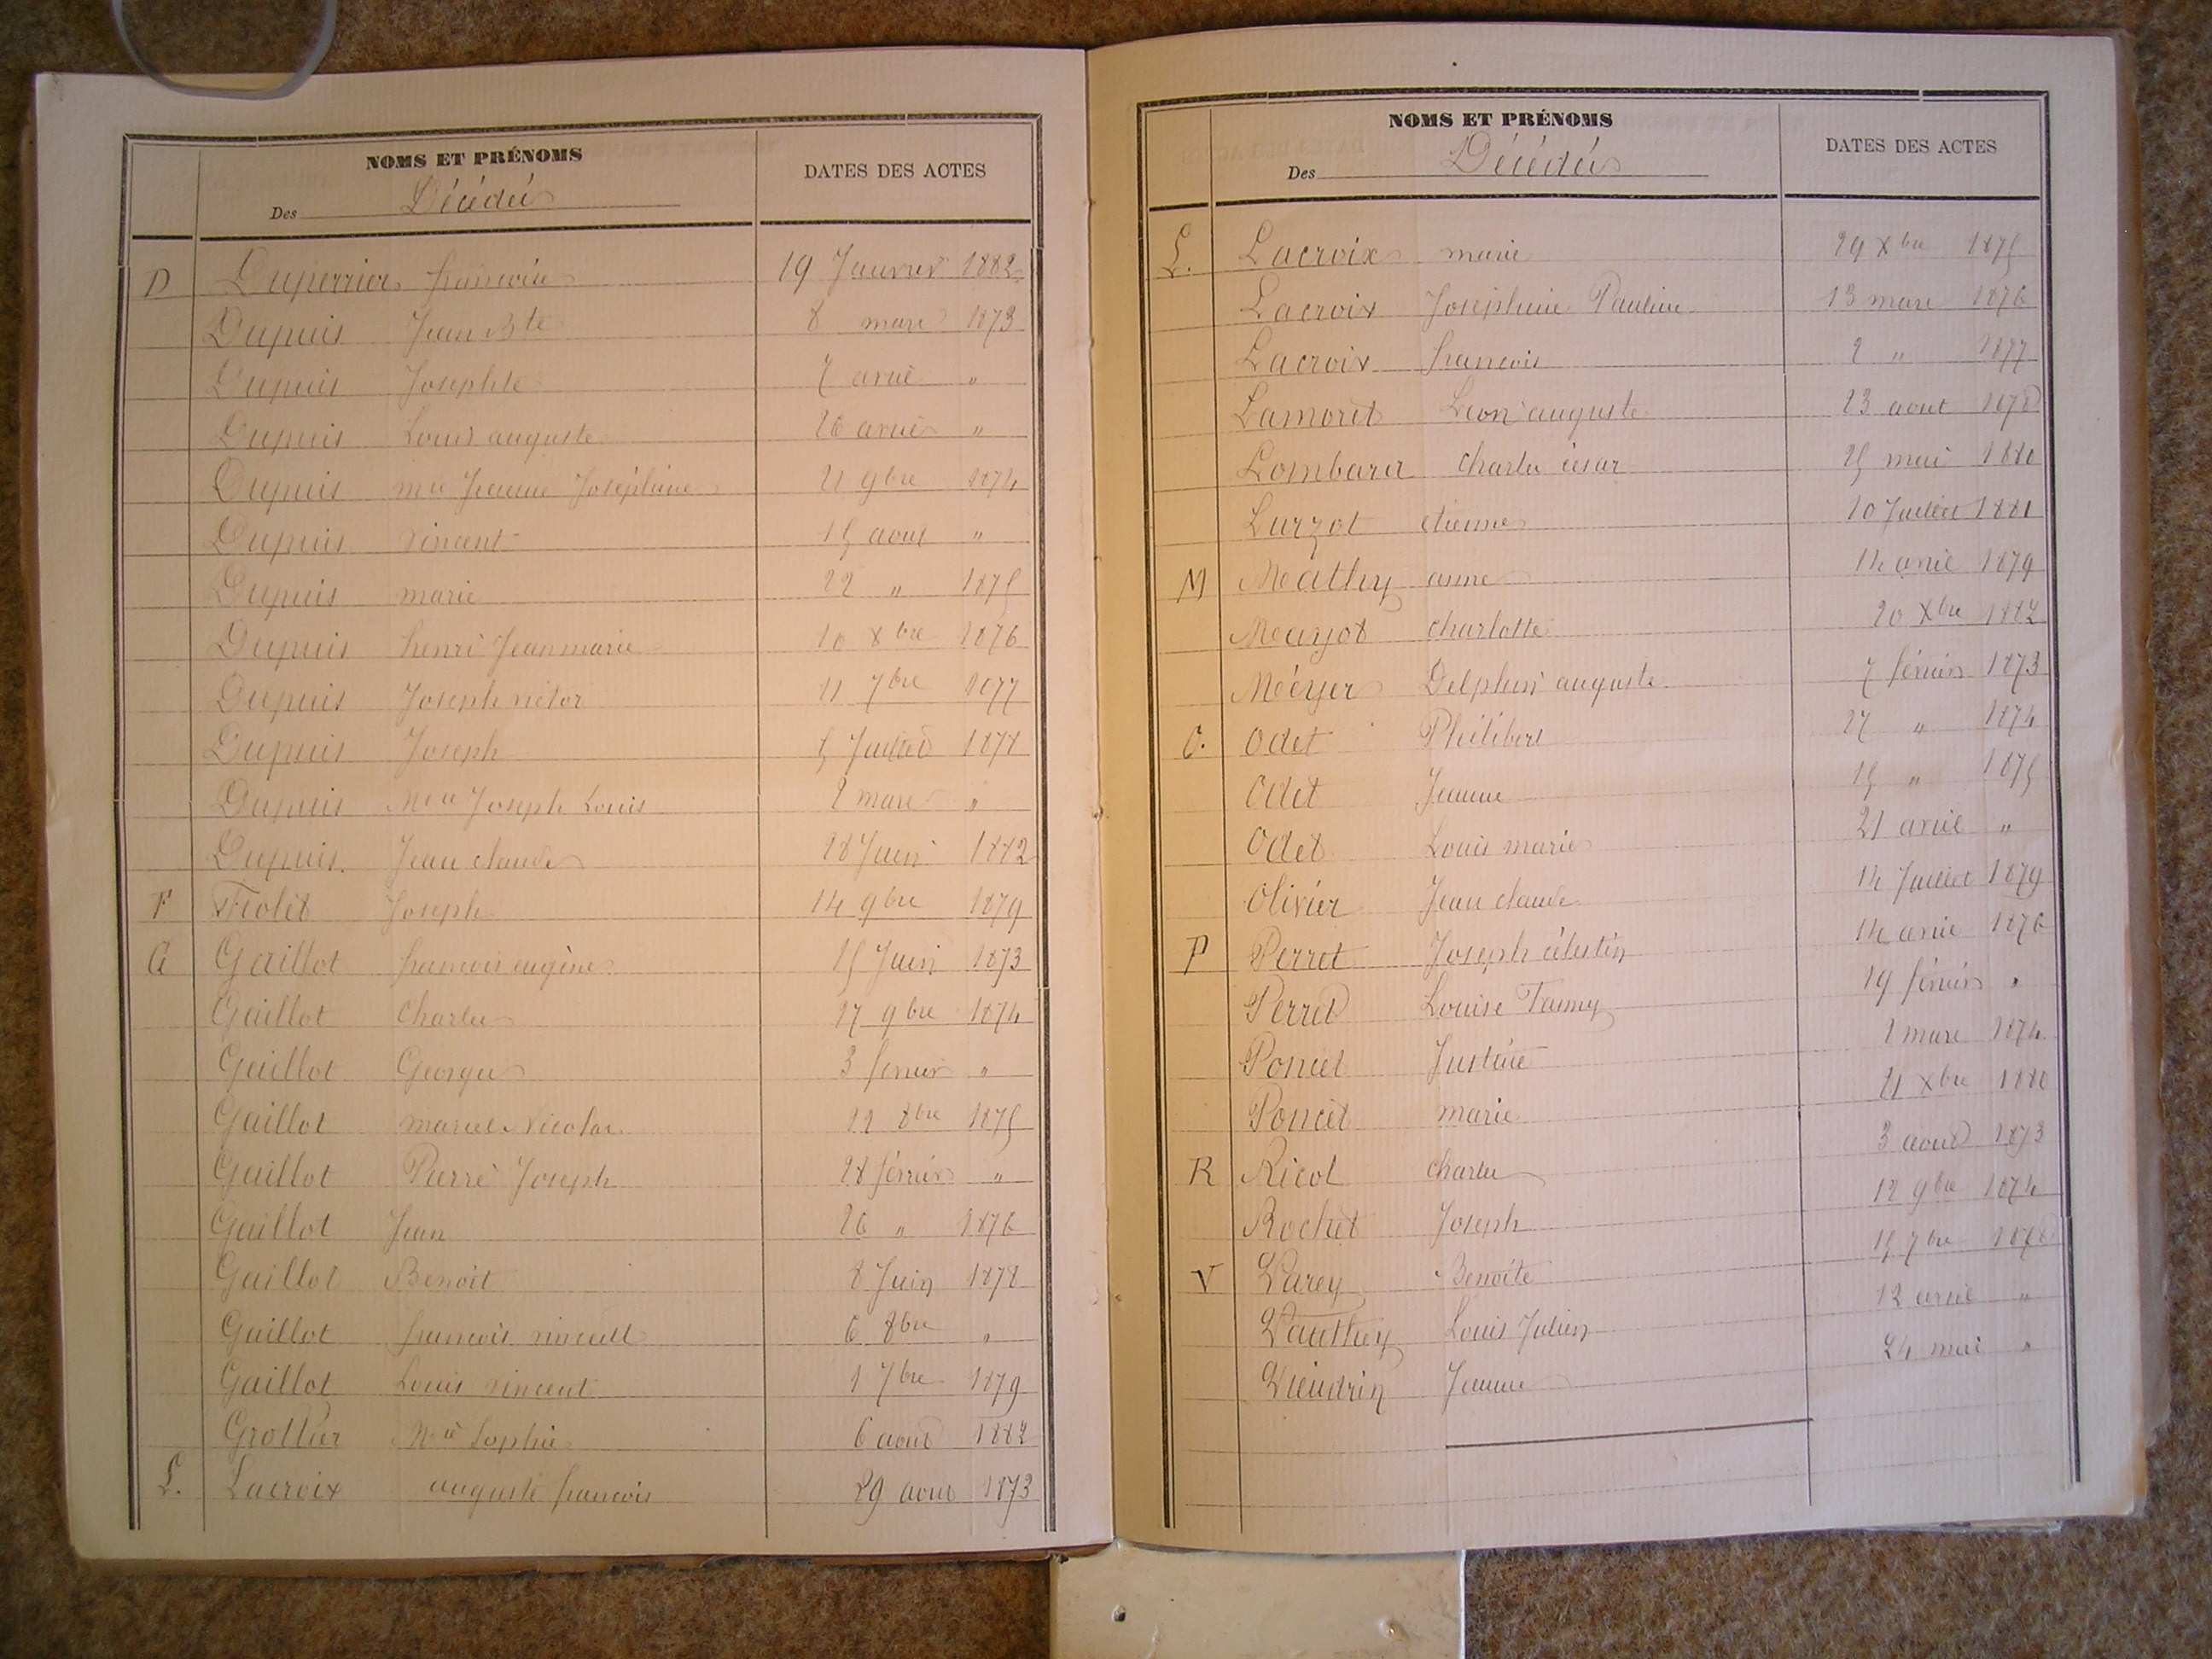 NOMS ET PRÉNOMS
Des Décédés
DATES DES ACTES
D Duperrier françoise 19 Janvier 1882
Dupuis Jean Bte 8 mars 1873
Dupuis Josephte 7 avril "
Dupuis Louis auguste 26 avril "
Dupuis mie Jeanne Joséphine 21 9bre 1874
Dupuis vincent 15 aout "
Dupuis marie 22 " 1875
Dupuis henri Jean marie 10 xbre 1876
Dupuis Joseph victor 11 7bre 1877
Dupuis Joseph 5 Juillet 1878
Dupuis Mie Joseph Louis 2 mars "
Dupuis. Jean claude 28 Juin 1882
F Fiolet Joseph 14 9bre 1879
G Gaillot francois eugène 15 Juin 1873
Gaillot Charles 17 9bre 1874
Gaillot Georges 3 fevrier "
Gaillot marcel Nicolas 12 8bre 1875
Gaillot Pierre Joseph 28 février "
Gaillot Jean 26 " 1876
Gaillot Benoit 8 Juin 1878
Gaillot francois vincent 6 8bre "
Gaillot Louis vincent 1 7bre 1879
Grollier Mie Sophie 6 aout 1882
L. Lacroix auguste francois 29 aout 1873
NOMS ET PRÉNOMS
Des Décédés
DATES DES ACTES
L. Lacroix marie 29 xbre 1875
Lacroix Joséphine Pauline 13 mars 1876
Lacroix francois 2 " 1877
Lamoret Leon auguste 23 aout 1878
Lombard Charles césar 25 mai 1880
Luzzot etienne 10 Juillet 1881
M Mathy anne 14 avril 1879
Mayot charlotte 20 xbre 1882
Méyer Delphin auguste 7 février 1873
O. Odet Philibert 27 " 1874
Odet Jeanne 15 " 1875
Odet Louis marie 21 avril "
Olivier Jean claude 14 Juillet 1879
P Perret Joseph célestin 14 avril 1876
Perret Louise Fanny 19 février "
Poncet Justine 1 mars 1874
Poncet marie 21 xbre 1880
R Ricol charles 3 aout 1873
Rochet Joseph 12 9bre 1874
V Varey Benoite 15 7bre 1878
Vauthey Louis Julien 12 avril "
Vieudrin Jeanne 24 mai "